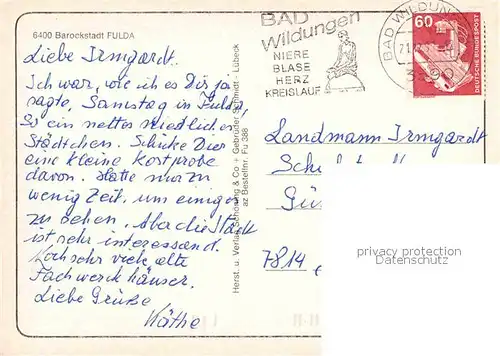 6400 Barockstadt FULDA
Liebe Irmgardt.
Ich war, wie ich es Dir ja
sagte, Samstag in Fulda,
So ein nettes niedliches
Städtchen. Schicke Dir
eine kleine Kostprobe
davon. Hatte nur zu
wenig Zeit, um einiges
zu sehen. Aber die Stadt
ist sehr interessand.
Noch sehr viele, alte
Fachwerckhäuser.
Liebe Grüße
Käthe
Herst. u. Verlag Schöning & Co + Gebrüder Schmidt - Lübeck
az Bestellnr. Fu 388
BAD
Wildungen
NIERE
BLASE
HERZ
KREISLAUF
BAD WILDUN
3590
60
DEUTSCHE BUNDESPOST
Landmann Irmgardt
7814
privacy protection
Datenschutz